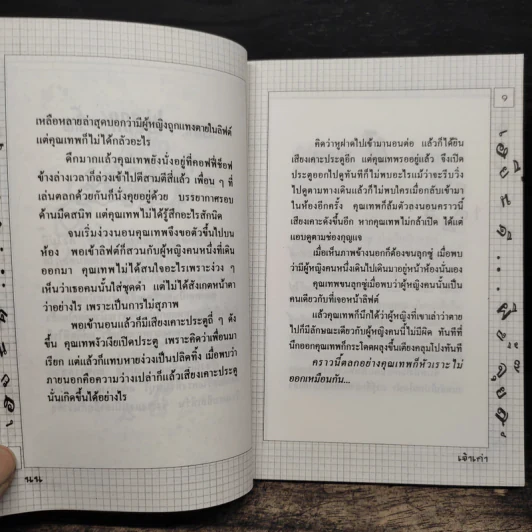 เหลือหลายล่าสุดบอกว่ามีผู้หญิงถูกแทงตายในลิฟต์
แต่คุณเทพก็ไม่ได้กลัวอะไร
ดึกมากแล้วคุณเทพยังนั่งอยู่ที่คอฟฟี่ช็อฟ
ข้างล่างเวลาก็ล่วงเข้าไปตีสามตีสี่แล้ว เพื่อน ๆ ที่
เล่นตลกด้วยกันก็นั่งคุยอยู่ด้วย บรรยากาศรอบ
ด้านมืดสนิท แต่คุณเทพไม่ได้รู้สึกอะไรสักนิด
จนเริ่มง่วงนอนคุณเทพจึงขอตัวขึ้นไปบน
ห้อง พอเข้าลิฟต์ก็สวนกับผู้หญิงคนหนึ่งที่เดิน
ออกมา คุณเทพไม่ได้สนใจอะไรเพราะง่วง ๆ
เห็นว่าเธอคนนั้นใส่ชุดดำ แต่ไม่ได้สังเกตหน้าตา
ว่าอย่างไร เพราะเป็นการไม่สุภาพ
พอเข้านอนแล้วก็มีเสียงเคาะประตูถี่ ๆ ดัง
ขึ้น คุณเทพงัวเงียไปเปิดประตู เพราะคิดว่าเพื่อนมา
เรียก แต่แล้วก็แทบหายง่วงเป็นปลิดทิ้ง เมื่อพบว่า
ภายนอกคือความว่างเปล่าก็แล้วเสียงเคาะประตู
นั่นเกิดขึ้นได้อย่างไร
นน
๑
คิดว่าหูฝาดไปเข้ามานอนต่อ แล้วก็ได้ยิน
เสียงเคาะประตูอีก แต่คุณเทพรออยู่แล้ว จึงเปิด
ประตูออกไปดูทันทีก็ไม่พบอะไรแม้ว่าจะรีบวิ่ง
ไปดูตามทางเดินแล้วก็ไม่พบใครเมื่อกลับเข้ามา
ในห้องอีกครั้ง คุณเทพก็ล้มตัวลงนอนคราวนี้
เสียงเคาะดังขึ้นอีก หากคุณเทพไม่กล้าเปิด ได้แต่
แอบดูตามช่องกุญแจ
เมื่อเห็นภาพข้างนอกก็ต้องขนลุกซู่ เมื่อพบ
ว่ามีผู้หญิงคนหนึ่งเดินไปเดินมาอยู่หน้าห้องนั่นเอง
คุณเทพขนลุกซู่เมื่อพบว่าผู้หญิงคนนั้นเป็น
คนเดียวกับที่เจอหน้าลิฟต์
แล้วคุณเทพก็นึกได้ว่าผู้หญิงที่เขาเล่าว่าตาย
ไปก็มีลักษณะเดียวกับผู้หญิงคนนี้ไม่มีผิด ทันทีที่
นึกออกคุณเทพก็กระโดดผลุงขึ้นเตียงคลุมโปงทันที
คราวนี้ตลกอย่างคุณเทพก็หัวเราะไม่
ออกเหมือนกัน...
เจ้าเก่า